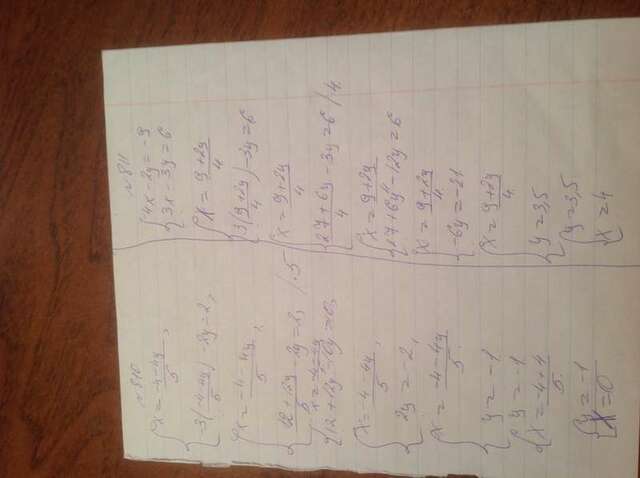 № 810
{x = -4-4y/5,
{-3(-4-4y)/5 - 2y = 2,
{x = -4-4y/5,
{12+12y/5 - 2y = 2, / ·5
{x = -4-4y/5
{12+12y-10y=10,
{x = -4-4y/5,
{2y = -2,
{x = -4-4y/5
{y = -1
{y = -1
{x = -4+4/5
{y = -1
{x = 0
№ 811
{4x - 2y = -9
{3x - 3y = 6
{x = 9+2y/4
{3(9+2y)/4 - 3y = 6
{x = 9+2y/4
{27+6y/4 - 3y = 6 / ·4
{x = 9+2y/4
{27+6y-12y=6
{x = 9+2y/4
{-6y = -21
{x = 9+2y/4
{y = 3,5
{y = 3,5
{x = 4